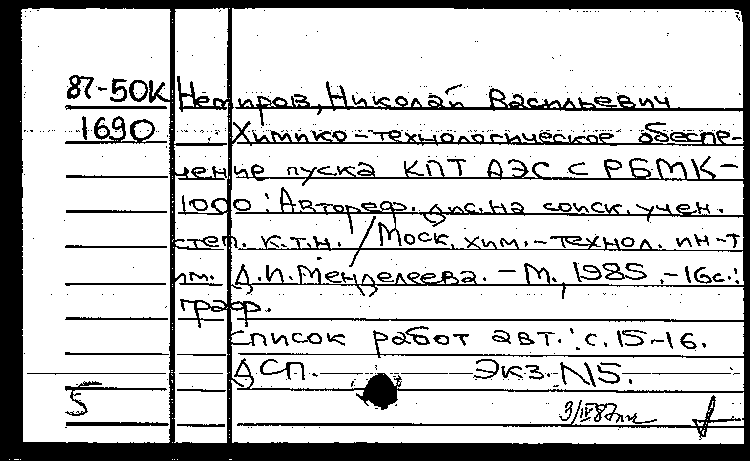 87-50К Немиров, Николай Васильевич
1690 Химико-технологическое обеспе-
чение пуска КПТ АЭС с РБМК-
1000: Автореф. дис. на соиск. учен.
степ. к.т.н. / Моск. хим.-технол. ин-т
им. Д.И. Менделеева. - М., 1985. - 16с.:
граф.
Список работ авт.: с. 15-16.
ДСП. Экз. N15.
5 3/IV87